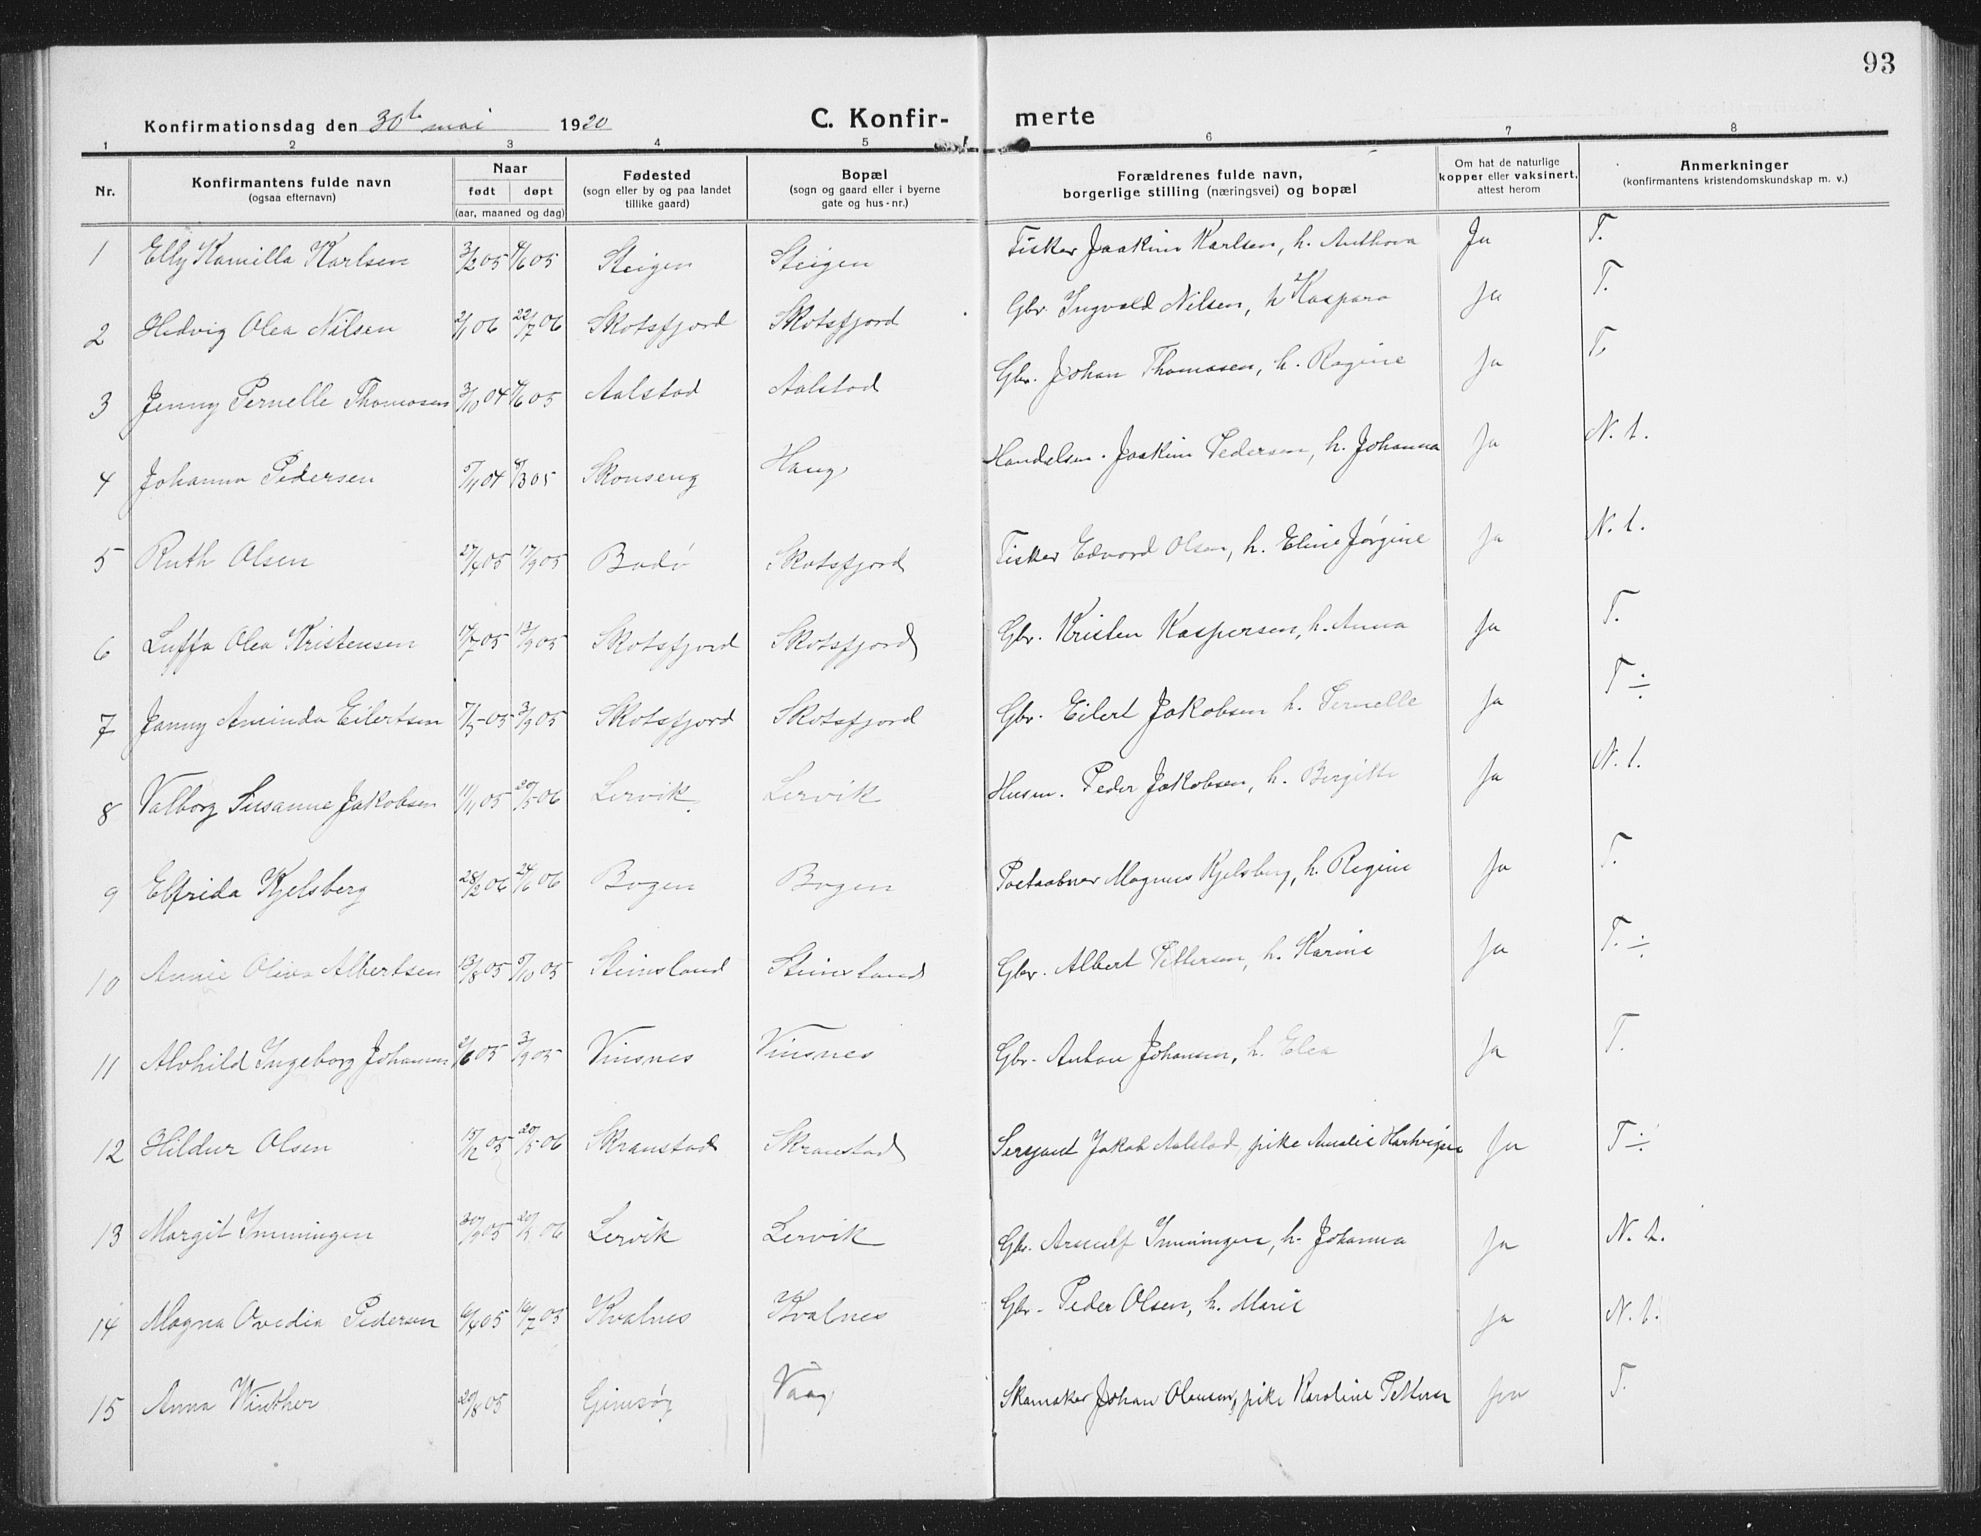 93
Konfirmationsdag den 30te mai 1920 C. Konfir- merte
1 2 3 4 5 6 7 8
Nr. Konfirmantens fulde navn (ogsaa efternavn) Naar født døpt (aar, maaned og dag) Fødested (sogn eller by og paa landet tillike gaard) Bopæl (sogn og gaard eller i byerne gate og hus-nr.) Forældrenes fulde navn, borgerlige stilling (næringsvei) og bopæl Om hat de naturlige kopper eller vaksinert, attest herom Anmerkninger (konfirmantens kristendomskundskap m. v.)
1 Elly Kamilla Karlsen 3/2 05 /6 05 Steigen Steigen Fisker Joakim Karlsen, h. Anthona Ja T.
2 Hedvig Olea Nilsen 2/1 06 22/7 06 Skotsfjord Skotsfjord Gbr. Ingvald Nilsen, h. Kaspara Ja T.
3 Jenny Pernelle Thomasen 3/10 04 /6 05 Aalstad Aalstad Gbr. Johan Thomasen, h. Regine Ja T.
4 Johanna Pedersen /11 04 /3 05 Skonseng Haug Handelsm. Joakim Pedersen, h. Johanna Ja N. t.
5 Ruth Olsen 27/4 05 17/9 05 Bodø Skotsfjord Fisker Edvard Olsen, h. Eline Jørgine Ja N. t.
6 Luffa Olea Kristensen 17/7 05 /9 05 Skotsfjord Skotsfjord Gbr. Kristen Kaspersen, h. Anna Ja T.
7 Jenny Aminda Eilertsen 7/5 05 3/9 05 Skotsfjord Skotsfjord Gbr. Eilert Jakobsen h. Pernelle Ja T ÷
8 Valborg Susanne Jakobsen 11/11 05 20/5 06 Lervik Lervik Husm. Peder Jakobsen, h. Bergitte Ja N. t.
9 Elfrida Kjelsberg 28/2 06 24/6 06 Bogen Bogen Postaabner Magnus Kjelsberg, h. Regine Ja T.
10 Annie Oliva Albertsen 13/8 05 /10 05 Steinsland Steinsland Gbr. Albert Pettersen, h. Karine Ja T. ÷
11 Alvhild Ingeborg Johansen 2/6 05 3/9 05 Vinsnes Vinsnes Gbr. Anton Johansen, h. Elea Ja T.
12 Hildur Olsen 15/12 05 20/5 06 Skranstad Skranstad Sersjant Jakob Aalstad, pike Amalie Hartvigsen Ja T ÷
13 Margit Immingen 30/9 05 20/5 06 Lervik Lervik Gbr. Arnulf Immingen, h. Johanna Ja N. t.
14 Magna Ovedia Pedersen 6/4 05 16/7 05 Kvalnes Kvalnes Gbr. Peder Olsen, h. Marie Ja N. t.
15 Anna Winther 20/8 05 Gimsøy Vaag Skomaker Johan Olausen, pike Karoline Petterse Ja T.